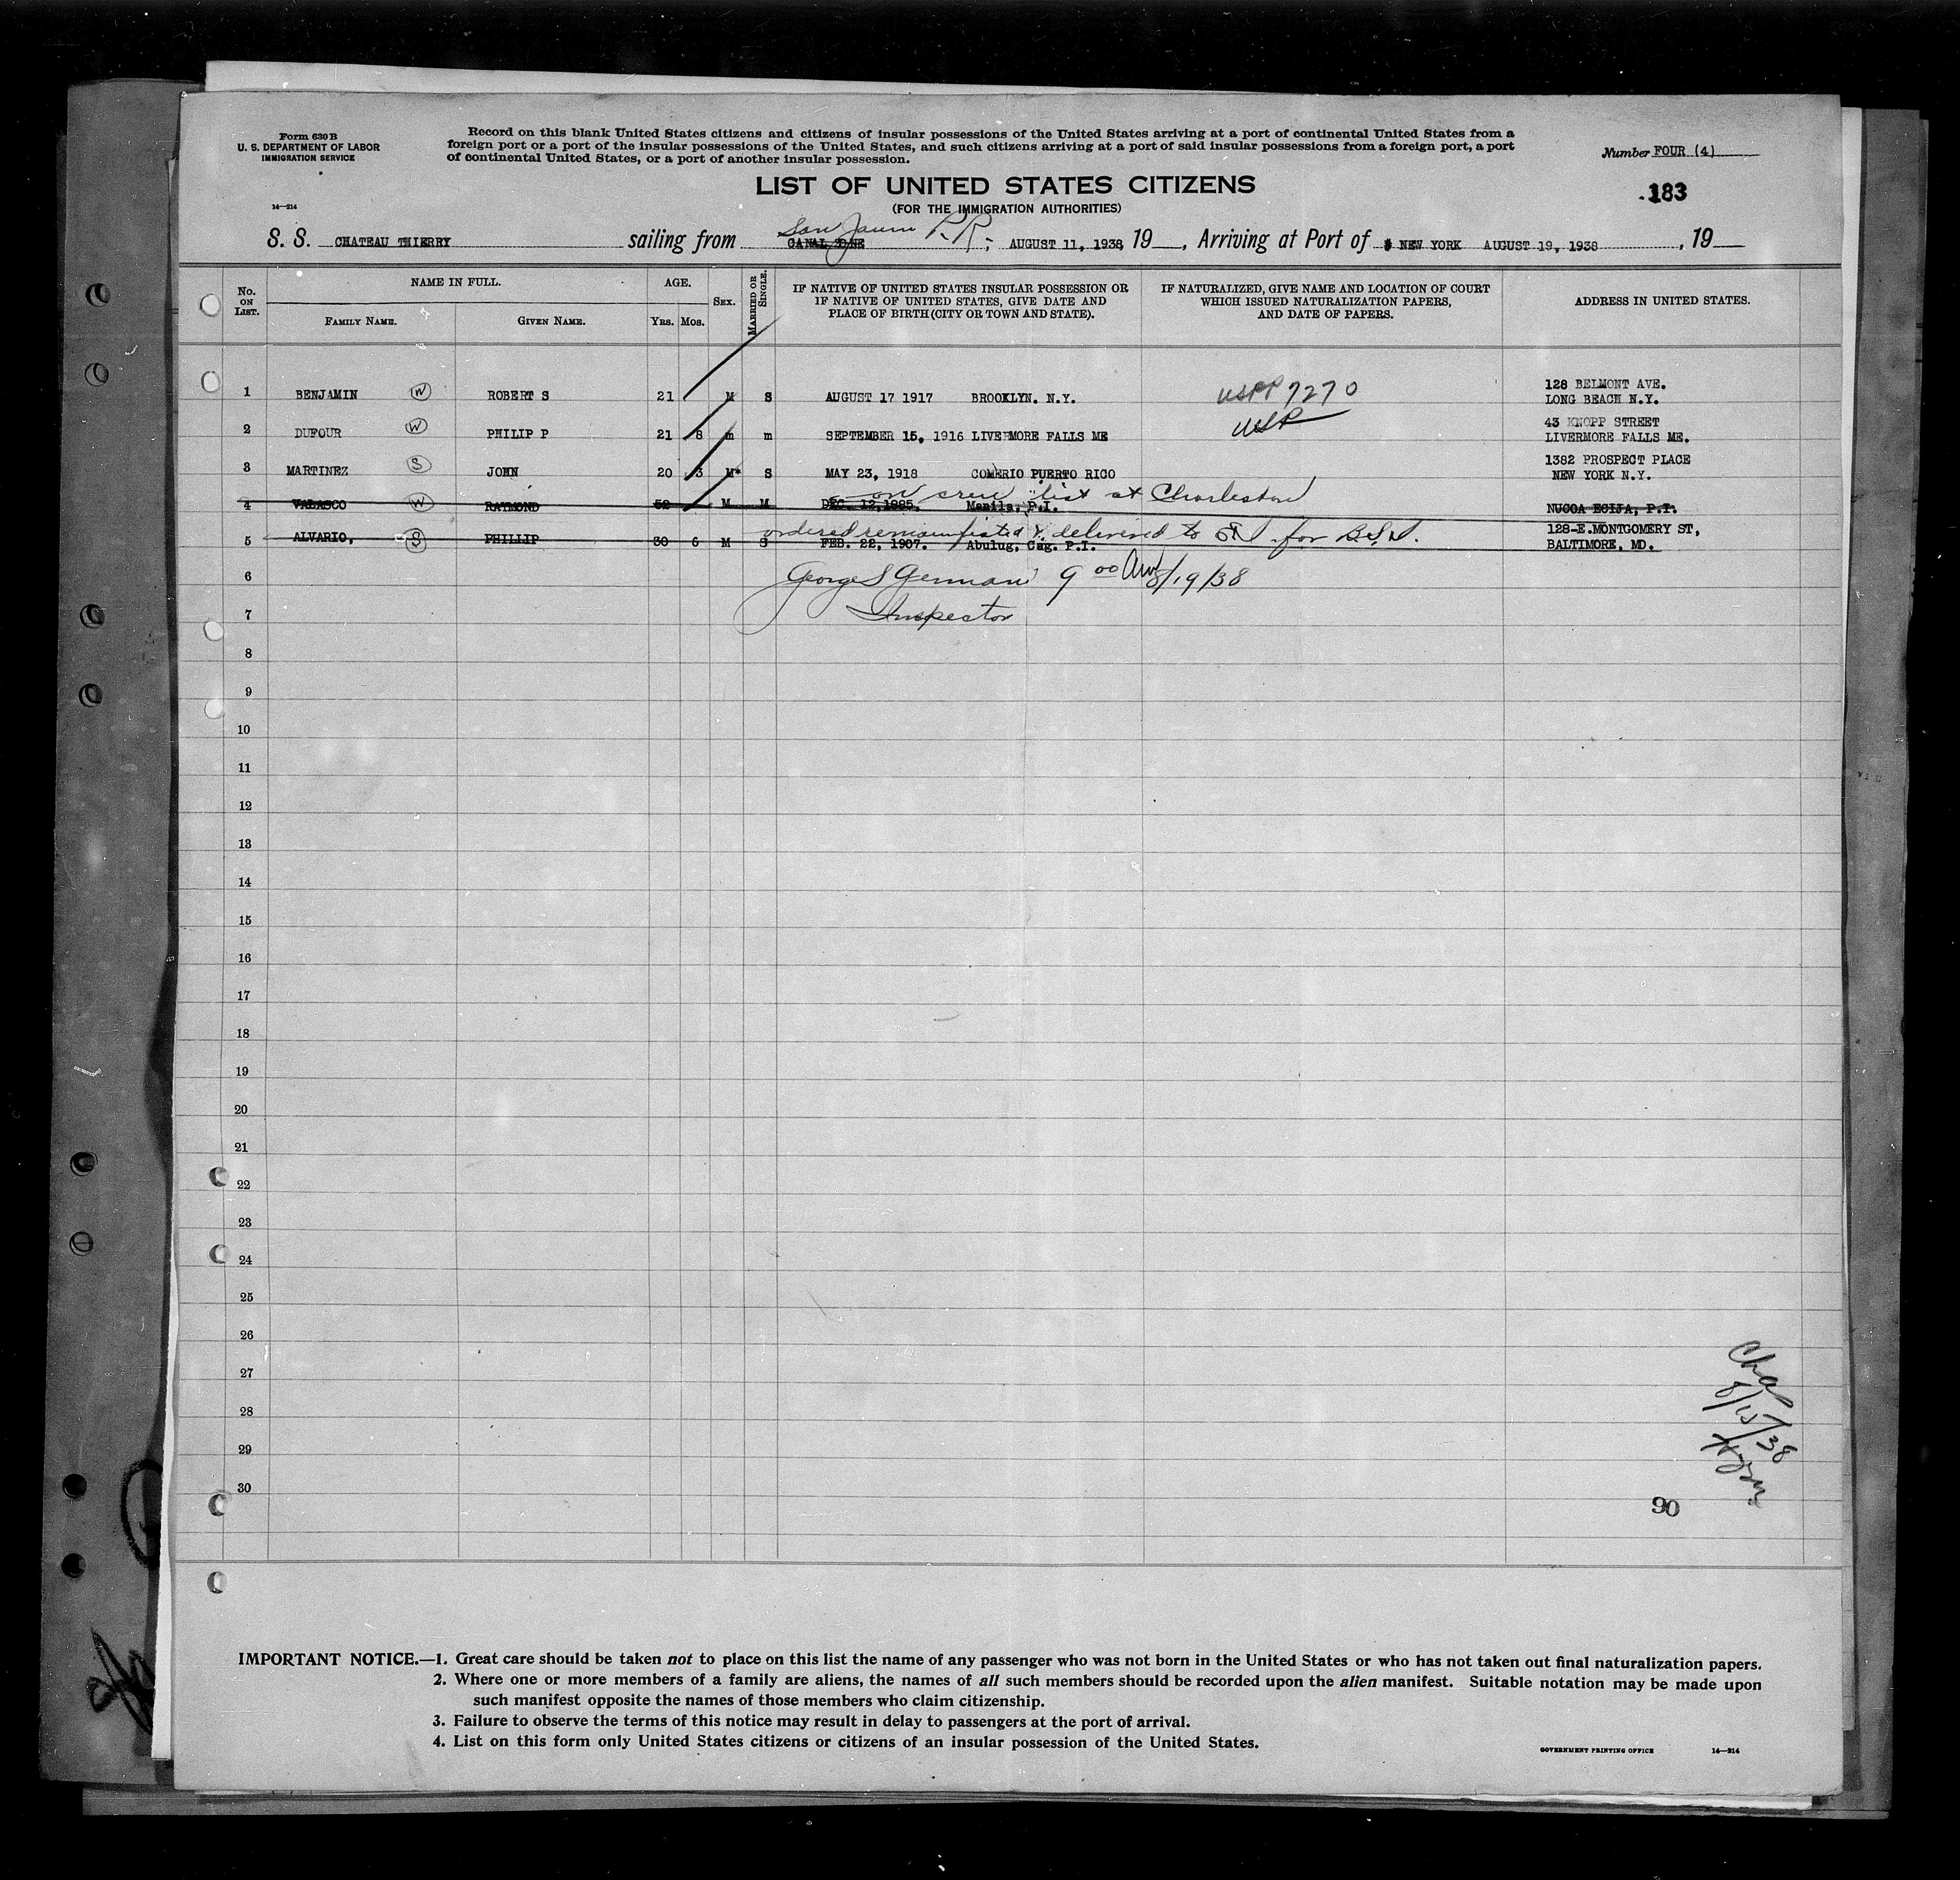 Form 630 B
U. S. DEPARTMENT OF LABOR
IMMIGRATION SERVICE
14—214
Record on this blank United States citizens and citizens of insular possessions of the United States arriving at a port of continental United States from a
foreign port or a port of the insular possessions of the United States, and such citizens arriving at a port of said insular possessions from a foreign port, a port
of continental United States, or a port of another insular possession.
Number FOUR (4)
LIST OF UNITED STATES CITIZENS
(FOR THE IMMIGRATION AUTHORITIES)
183
San Juan P.R.
S. S. CHATEAU THIERRY sailing from CANAL ZONE AUGUST 11, 1938, 19 , Arriving at Port of NEW YORK AUGUST 19, 1938 , 19
No. ON LIST. NAME IN FULL. FAMILY NAME. GIVEN NAME. AGE. YRS. MOS. SEX. MARRIED OR SINGLE. IF NATIVE OF UNITED STATES INSULAR POSSESSION OR IF NATIVE OF UNITED STATES, GIVE DATE AND PLACE OF BIRTH (CITY OR TOWN AND STATE). IF NATURALIZED, GIVE NAME AND LOCATION OF COURT WHICH ISSUED NATURALIZATION PAPERS, AND DATE OF PAPERS. ADDRESS IN UNITED STATES.
1 BENJAMIN W ROBERT S 21 M S AUGUST 17 1917 BROOKLYN. N.Y. USPP 7270 128 BELMONT AVE. LONG BEACH N.Y.
2 DUFOUR W PHILIP P 21 8 m m SEPTEMBER 15, 1916 LIVERMORE FALLS ME 43 KNOPP STREET LIVERMORE FALLS ME.
3 MARTINEZ S JOHN 20 3 M S MAY 23, 1918 COMERIO PUERTO RICO 1382 PROSPECT PLACE NEW YORK N.Y.
on crew list at Charleston
4 VALASCO W RAYMOND 52 M M DEC. 12, 1885. Manila, P.I. NUCOA ECIJA, P.I.
ordered remanifested & delivered to for
5 ALVARIO, S PHILLIP 30 6 M S FEB. 22, 1907. Abulug, Cag. P.I. 128-E.MONTGOMERY ST, BALTIMORE, MD.
6 George S German 9 00 AM 8/19/38
7 Inspector
8
9
10
11
12
13
14
15
16
17
18
19
20
21
22
23
24
25
26
27
28
29
30
Cha
8/15/38
90
IMPORTANT NOTICE.—1. Great care should be taken not to place on this list the name of any passenger who was not born in the United States or who has not taken out final naturalization papers.
2. Where one or more members of a family are aliens, the names of all such members should be recorded upon the alien manifest. Suitable notation may be made upon
such manifest opposite the names of those members who claim citizenship.
3. Failure to observe the terms of this notice may result in delay to passengers at the port of arrival.
4. List on this form only United States citizens or citizens of an insular possession of the United States.
GOVERNMENT PRINTING OFFICE 14—214